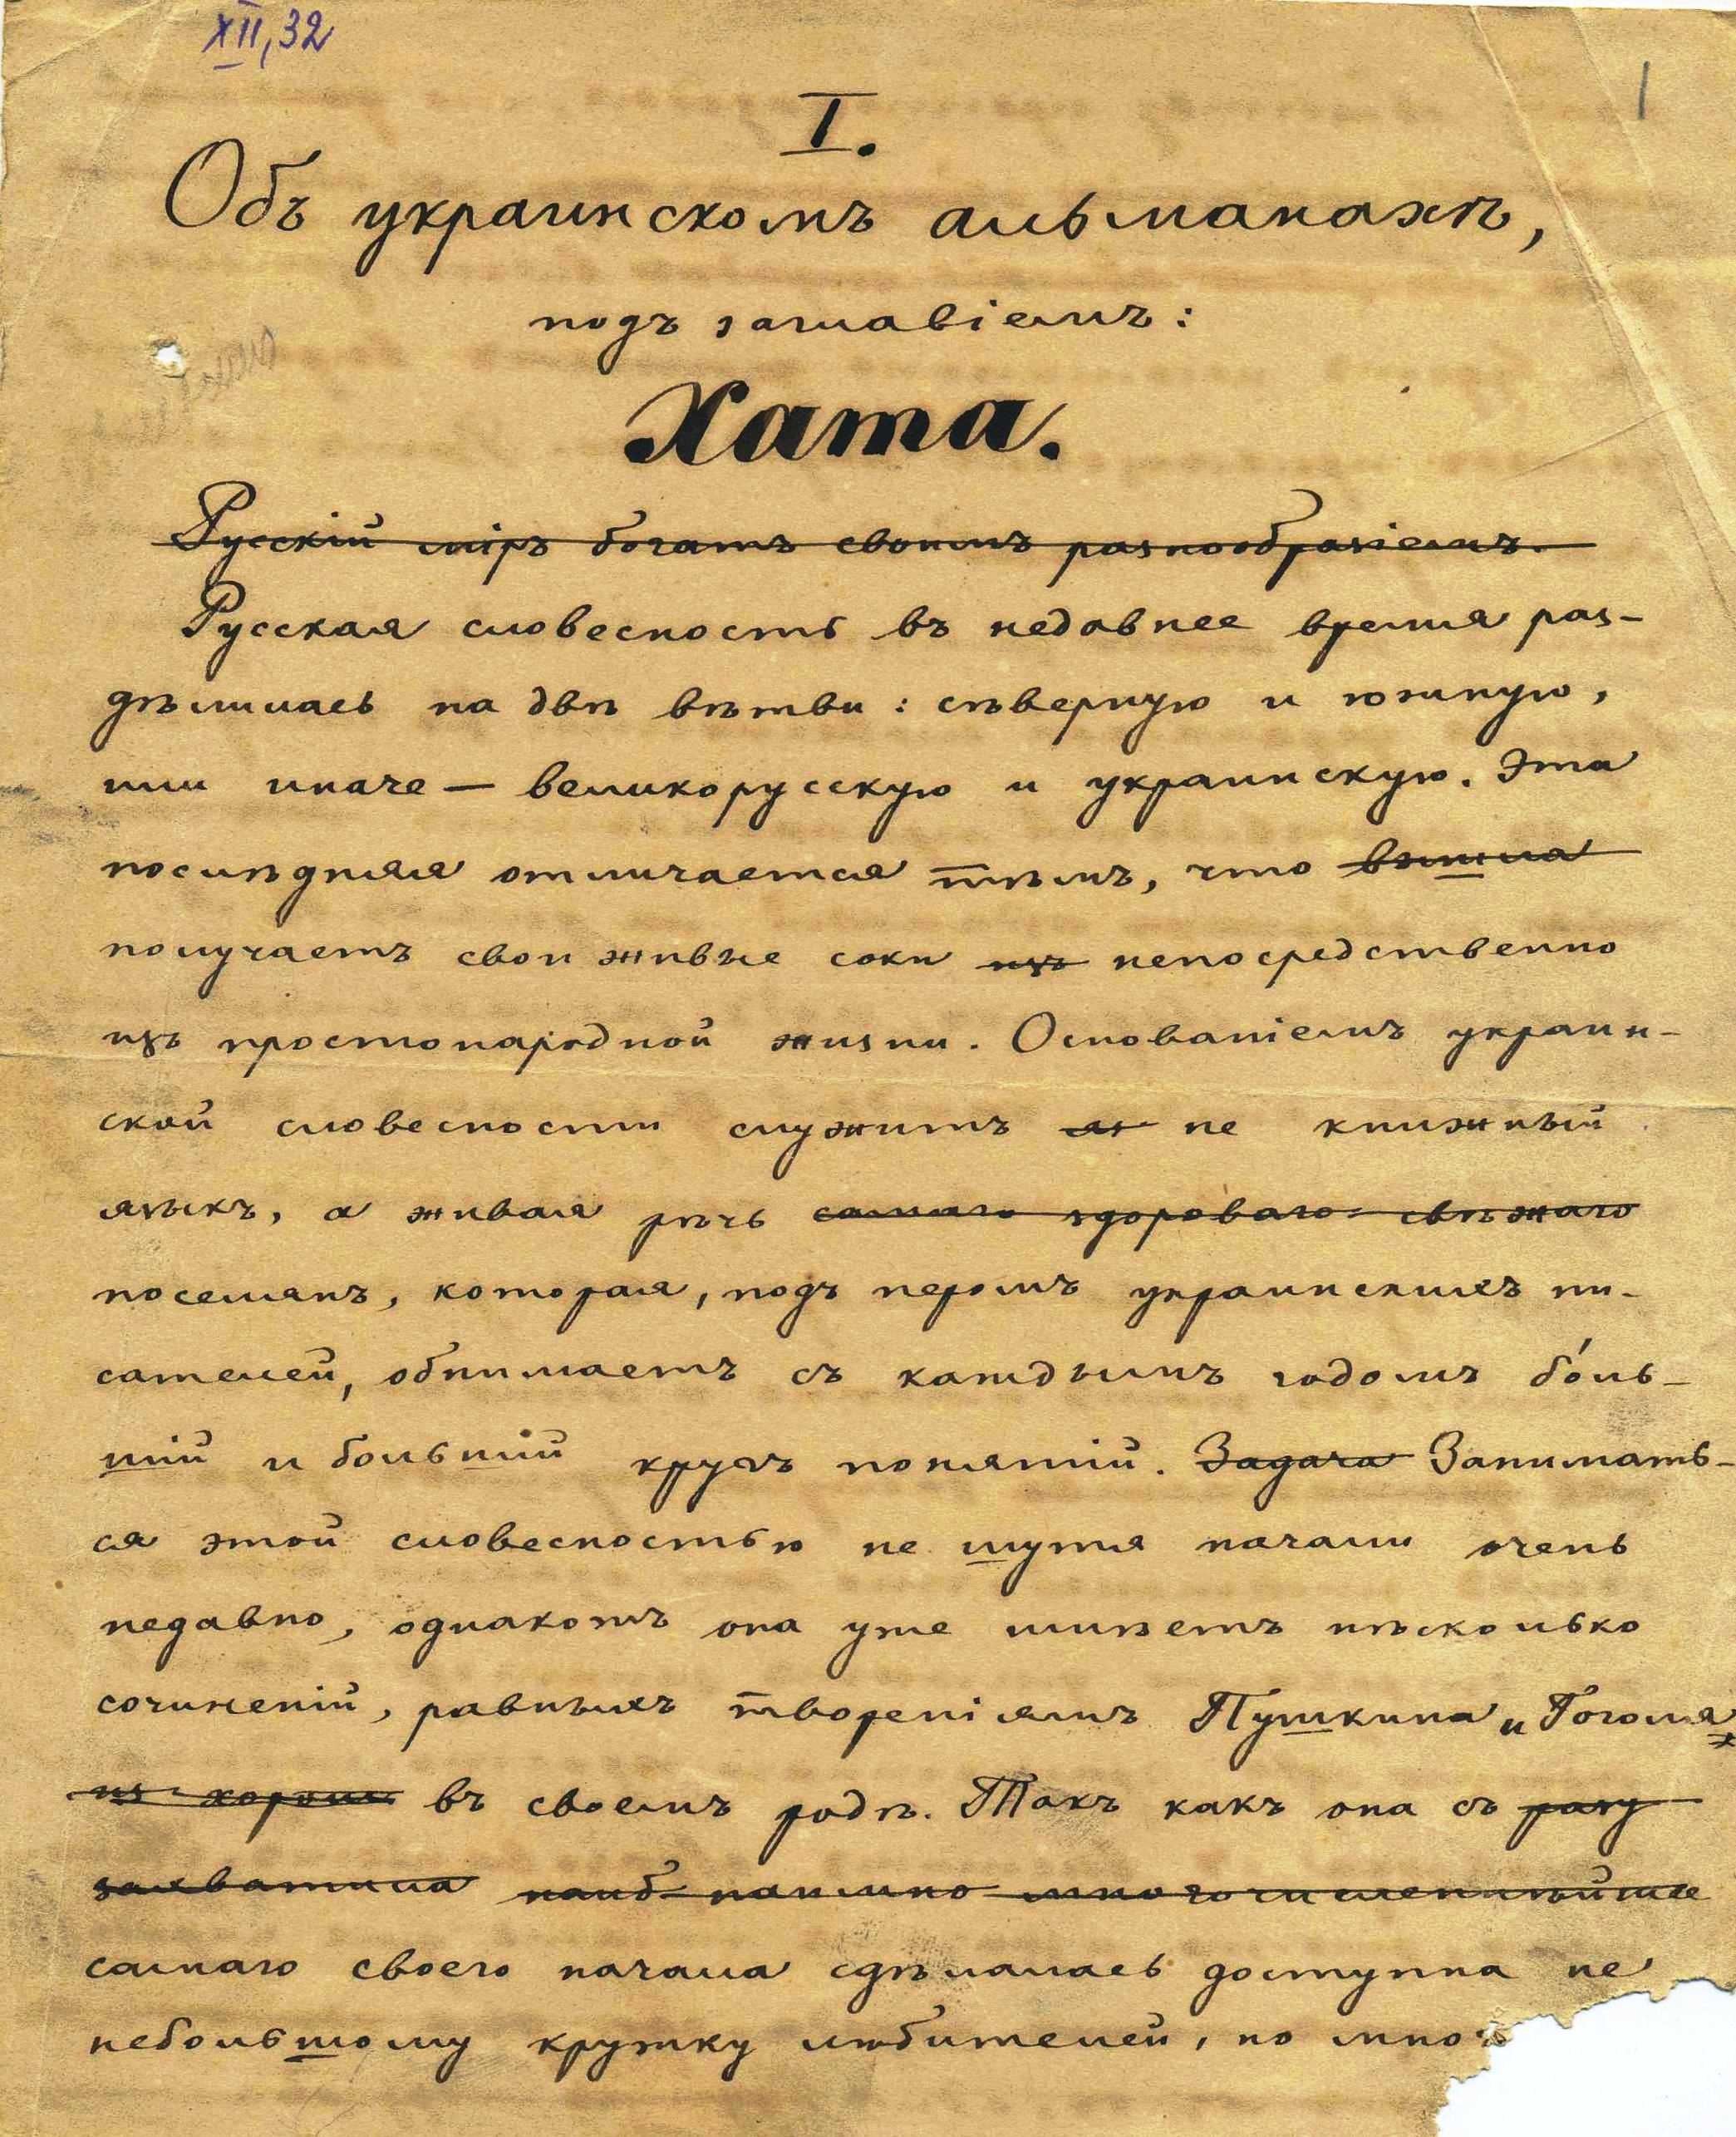 XII, 32
1
I.
Объ украинскомъ альманахѣ,
подъ заглавіемъ:
Хата.
Русскій міръ богатъ своимъ разнообразіемъ.
Русская словесность въ недавнее время раз-
дѣлилась на двѣ вѣтви: сѣверную и южную,
или иначе — великорусскую и украинскую. Эта
послѣдняя отличается тѣмъ, что вышла
получаетъ свои живые соки изъ непосредственно
изъ простонародной жизни. Основаніемъ украин-
ской словесности служитъ не книжный
языкъ, а живая рѣчь самаго здороваго свѣжаго
поселянъ, которая, подъ перомъ украинскихъ пи-
сателей, обнимаетъ съ каждымъ годомъ бо́ль-
шій и большій кругъ понятій. Задача Занимать-
ся этой словесностью не шутя начали очень
недавно, однакожъ она уже имѣетъ нѣсколько
сочиненій, равныхъ твореніямъ Пушкина и Гоголя
въ своемъ родѣ. Такъ какъ она съ разу
захватила наиб наимно многочисленнѣйшее
самаго своего начала сдѣлалась доступна не
небольшому кружку любителей, но